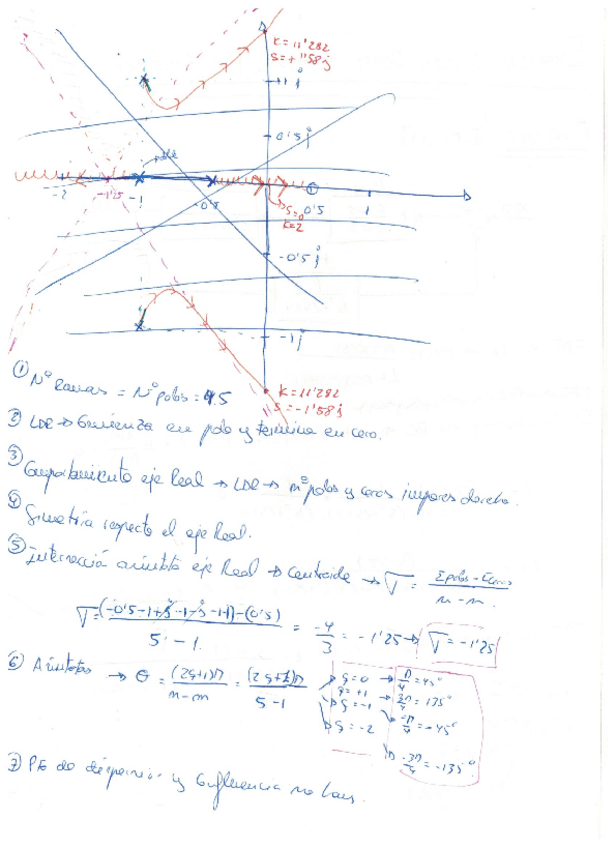 K = 11'282
S = + 1'58 j
+1 j
0'5 j
polo
-2
-1'25
-1
-0'5
S=0
K=2
0'5
1
-0'5 j
-1 j
K = 11'282
S = -1'58 j
① Nº Ramas = Nº polos = 5
② LDR → Comienza en polo y termina en cero.
③ Comportamiento eje Real → LDR → nº polos y ceros impares derecho.
④ Simetría respecto el eje Real.
⑤ intersección asíntota eje Real → Centroide → σ = Σpolos - Σceros / n - m
σ = (-0'5-1+j-1-j-1-1)-(0'5) / 5 - 1 = -4 / 3 = -1'25 → σ = -1'25
⑥ Asíntotas → θ = (2q+1)π / n-m = (2q+1)π / 5-1
q=0 → π/4 = 45º
q=+1 → 3π/4 = 135º
q=-1 → -π/4 = -45º
q=-2 → -3π/4 = -135º
⑦ Pto de dispersión y Confluencia no hay.